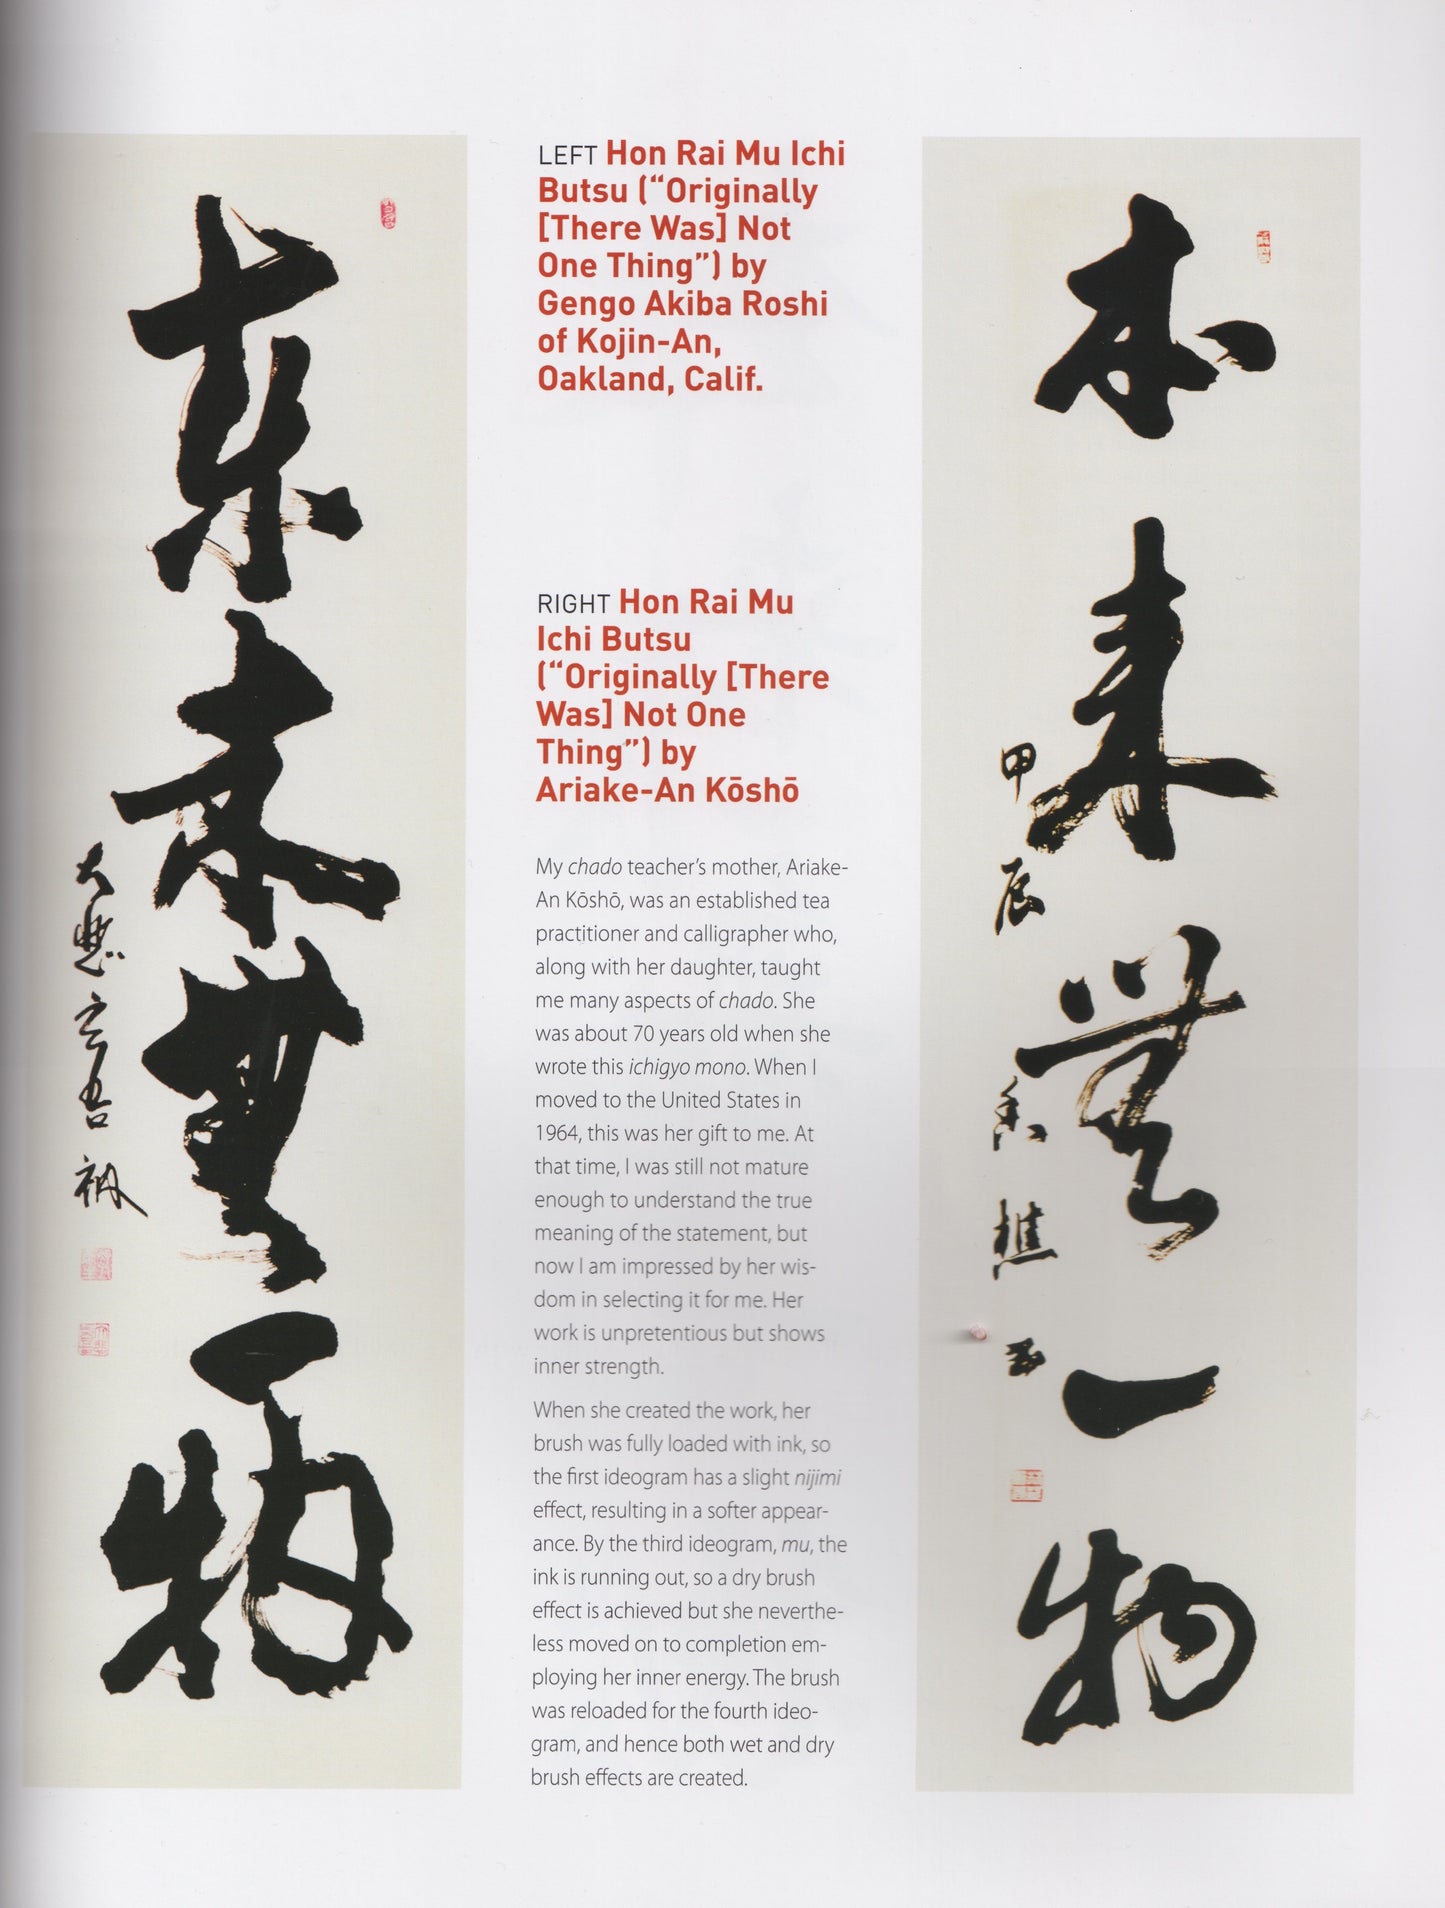 本
来
無
一
物
玄吾衲
LEFT Hon Rai Mu Ichi
Butsu (“Originally
[There Was] Not
One Thing”) by
Gengo Akiba Roshi
of Kojin-An,
Oakland, Calif.
RIGHT Hon Rai Mu
Ichi Butsu
(“Originally [There
Was] Not One
Thing”) by
Ariake-An Kōshō
My chado teacher’s mother, Ariake-
An Kōshō, was an established tea
practitioner and calligrapher who,
along with her daughter, taught
me many aspects of chado. She
was about 70 years old when she
wrote this ichigyo mono. When I
moved to the United States in
1964, this was her gift to me. At
that time, I was still not mature
enough to understand the true
meaning of the statement, but
now I am impressed by her wis-
dom in selecting it for me. Her
work is unpretentious but shows
inner strength.
When she created the work, her
brush was fully loaded with ink, so
the first ideogram has a slight nijimi
effect, resulting in a softer appear-
ance. By the third ideogram, mu, the
ink is running out, so a dry brush
effect is achieved but she neverthe-
less moved on to completion em-
ploying her inner energy. The brush
was reloaded for the fourth ideo-
gram, and hence both wet and dry
brush effects are created.
本
来
無
一
物
甲辰
香樵